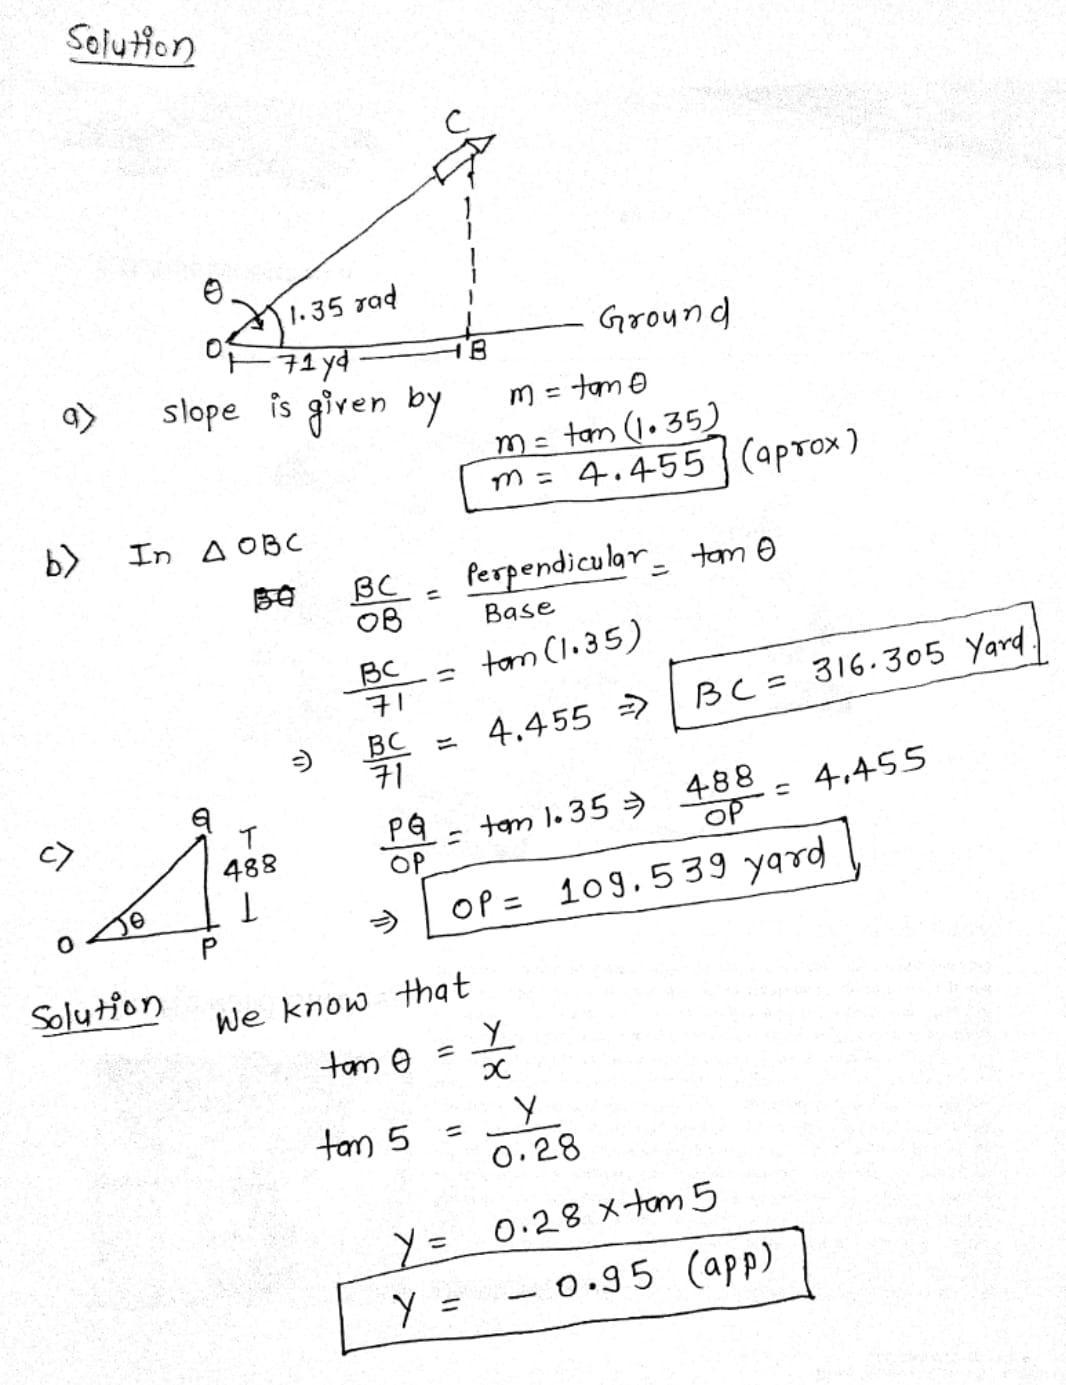 Solution
C
θ
1.35 rad
Ground
O
71 yd
B
a) slope is given by m = tan θ
m = tan (1.35)
m = 4.455 (aprox)
b) In △ OBC
BC/OB = Perpendicular/Base = tan θ
BC/71 = tan (1.35)
⇒ BC/71 = 4.455 ⇒ BC = 316.305 Yard.
c) Q
T
488
⊥
θ
O
P
PQ/OP = tan 1.35 ⇒ 488/OP = 4.455
⇒ OP = 109.539 yard
Solution We know that
tan θ = Y/x
tan 5 = Y/0.28
Y = 0.28 × tan 5
Y = - 0.95 (app)